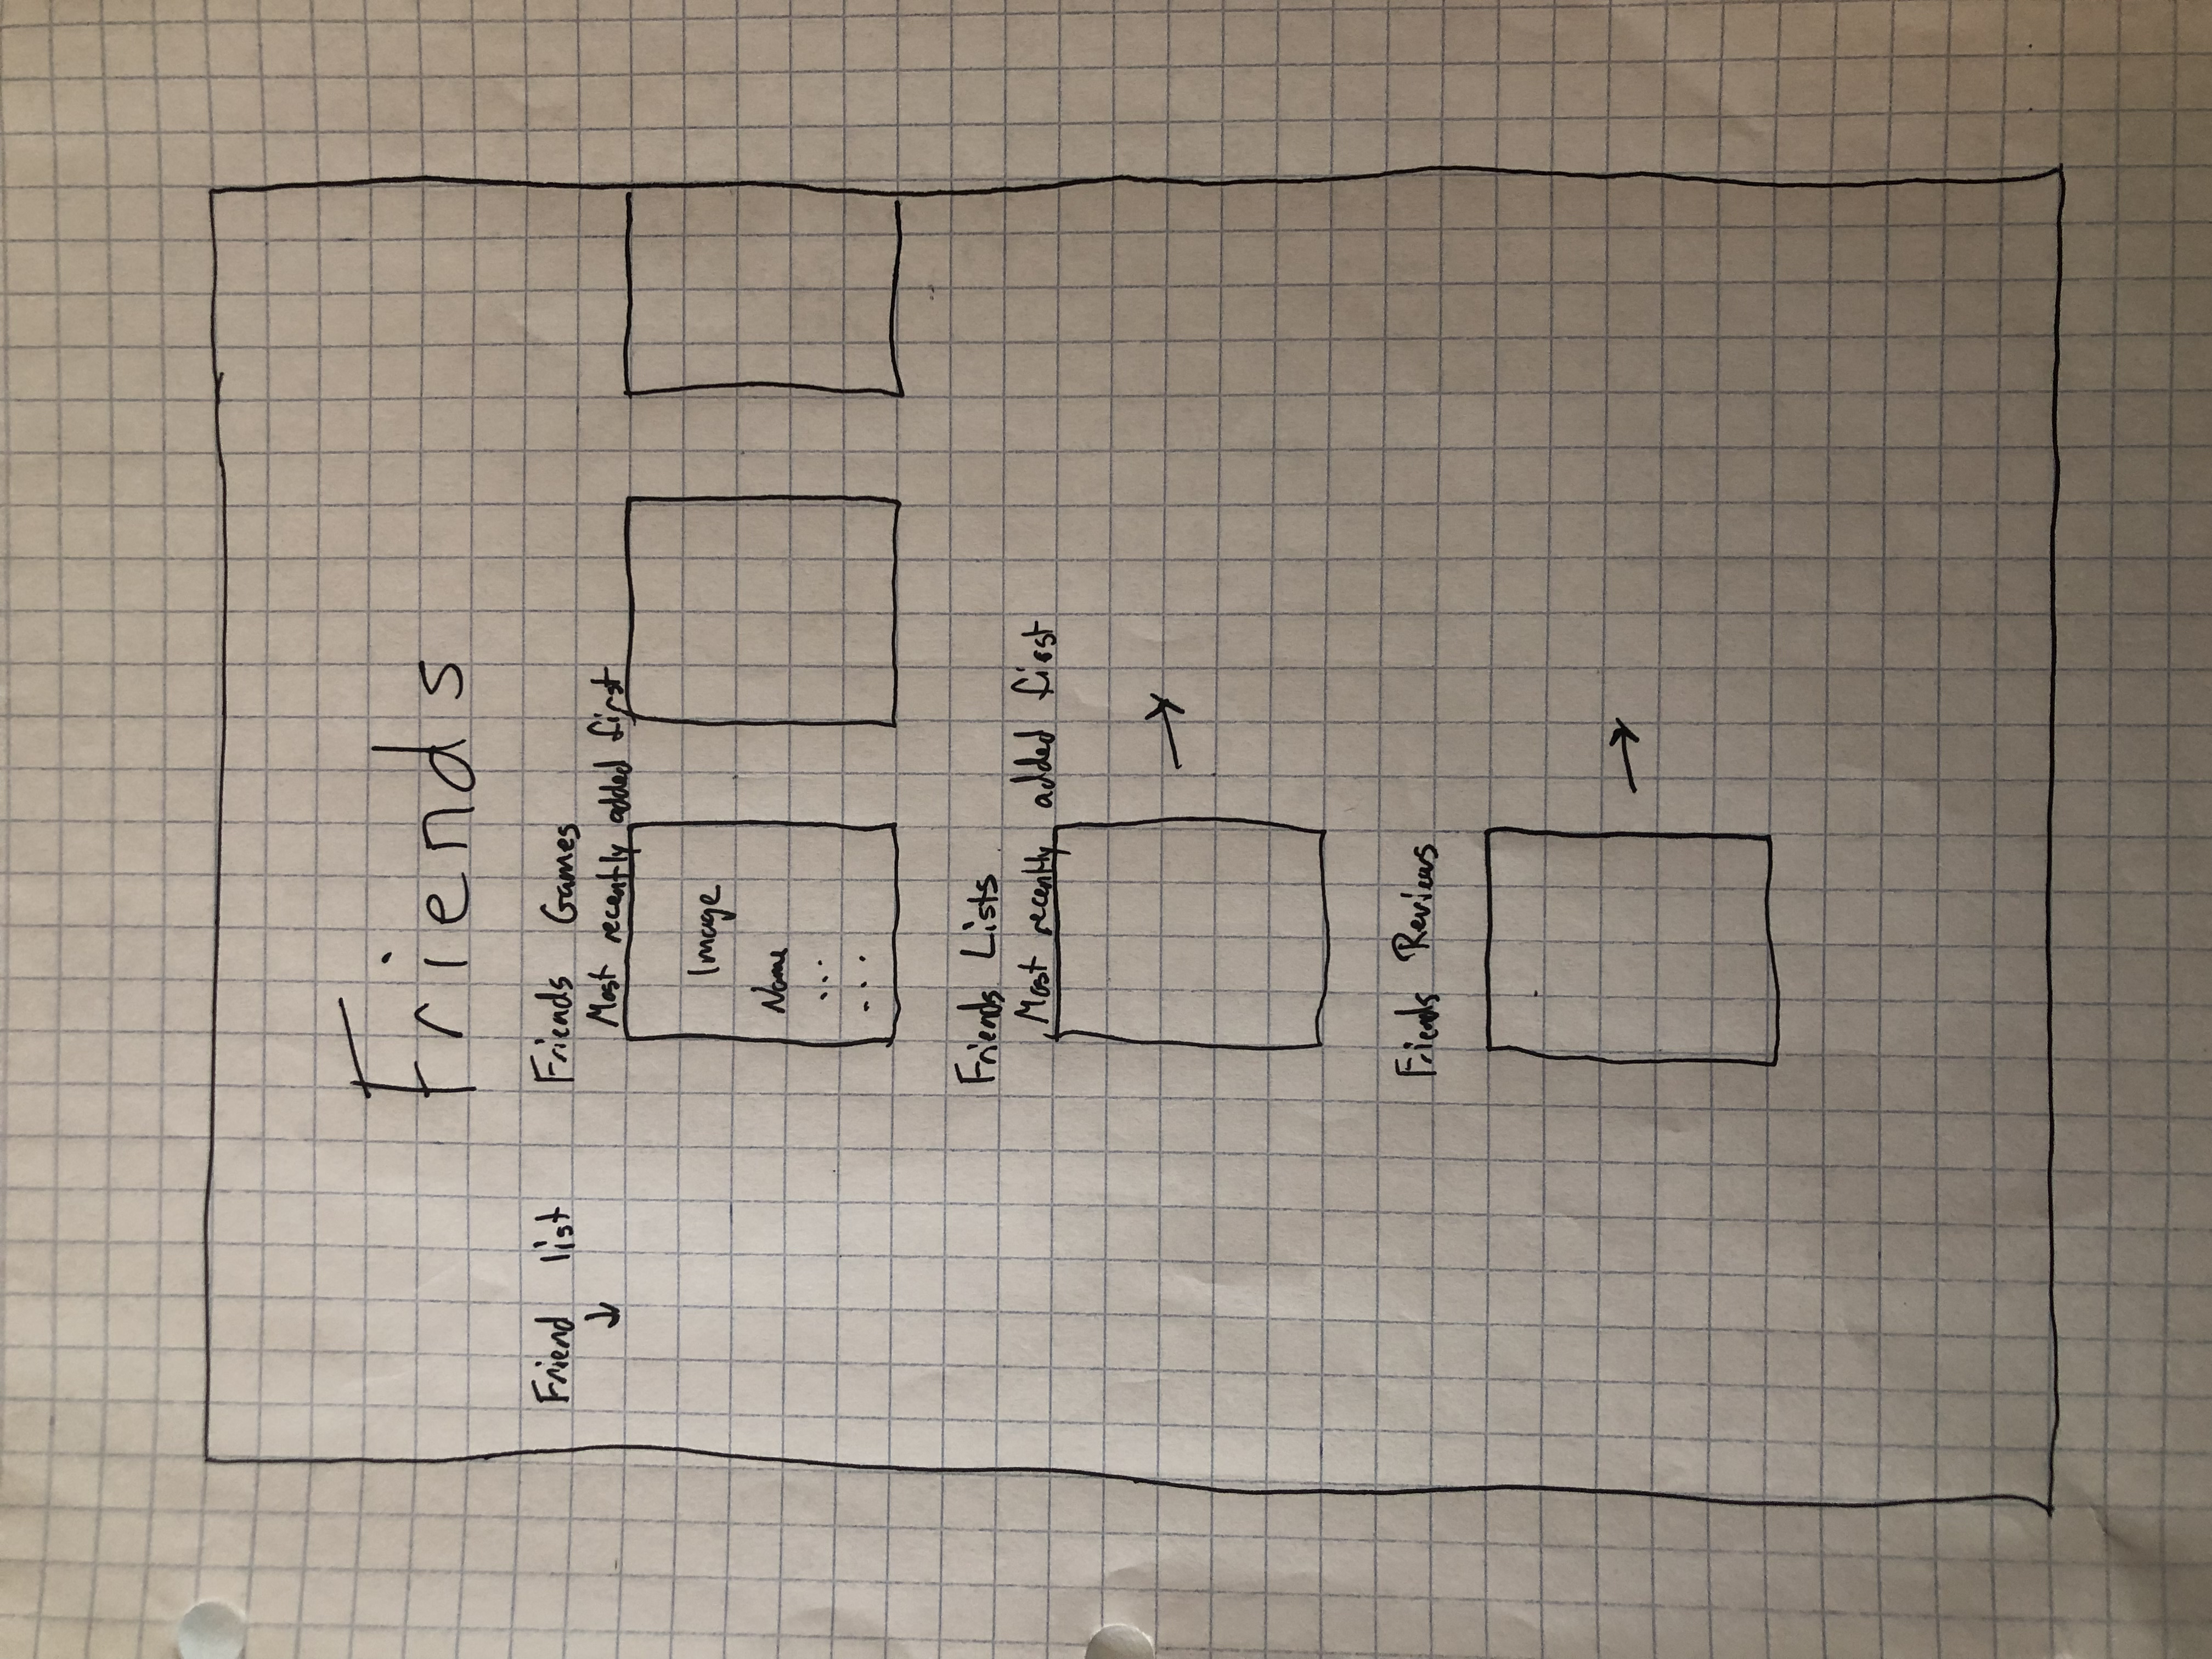 Friends
Friend list
Friends Games
Most recently added first
Image
Name
...
...
Friends Lists
Most recently added first
Friends Reviews